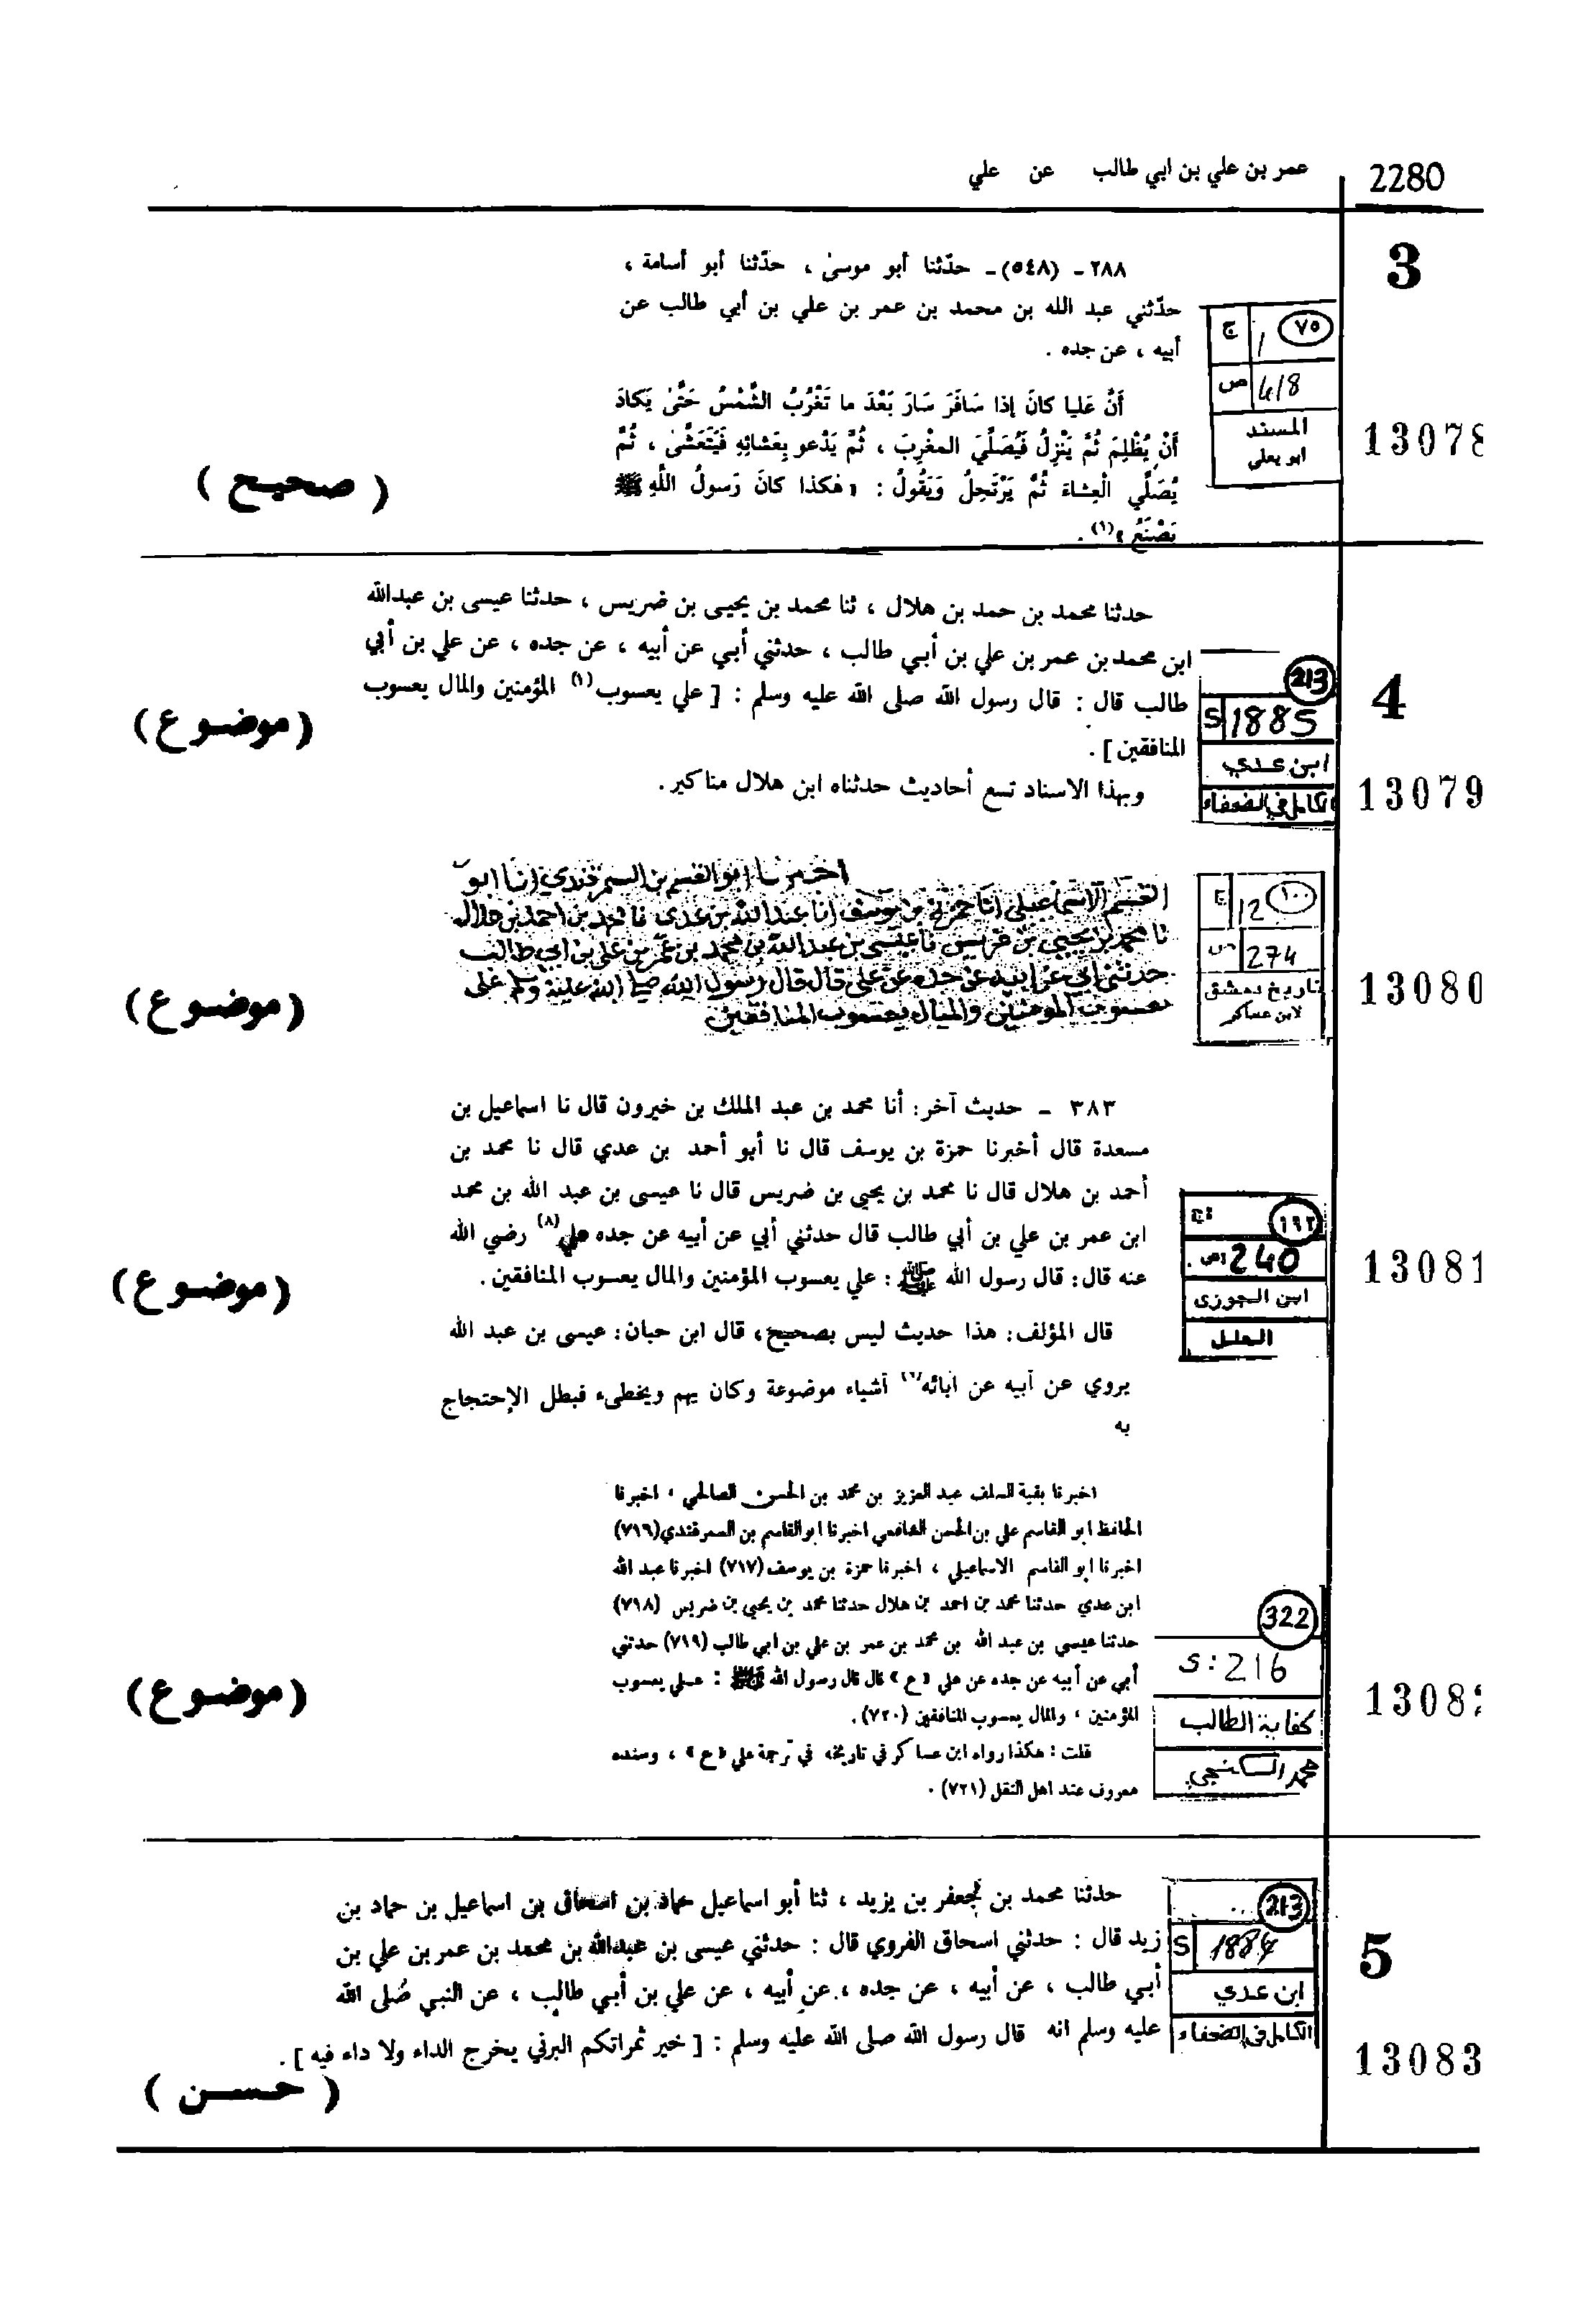 2280
عمر بن علي بن ابي طالب عن علي
3
٢٨٨ - (٥٤٨) - حدّثنا أبو موسىٰ ، حدّثنا أبو أسامة ،
حدّثني عبد الله بن محمد بن عمر بن علي بن أبي طالب عن
أبيه ، عن جده .
أَنَّ عَلِيا كانَ إِذا سَافَرَ سَارَ بَعْدَ ما تَغْرُبُ الشَّمْسُ حَتَّىٰ يَكادَ
أَنْ يُظْلِمَ ثُمَّ يَنْزِلُ فَيُصَلِّيَ المغْرِبَ ، ثُمَّ يَدْعو بِعَشائِهِ فَيَتَعَشَّىٰ ، ثُمَّ
يُصَلِّي الْعِشاءَ ثُمَّ يَرْتَحِلُ وَيَقُولُ : « هٰكذا كانَ رَسولُ اللَّهِ ﷺ
يَصْنَعُ »(١) .
ج ١ ٧٥
ص 418
المسند
ابو يعلى
13078
( صحيح )
حدثنا محمد بن حمد بن هلال ، ثنا محمد بن يحيى بن ضريس ، حدثنا عيسى بن عبدالله
ابن محمد بن عمر بن علي بن أبي طالب ، حدثني أبي عن أبيه ، عن جده ، عن علي بن أبي
طالب قال : قال رسول الله صلى الله عليه وسلم : [ علي يعسوب(١) المؤمنين والمال يعسوب
المنافقين ] .
وبهذا الاسناد تسع أحاديث حدثناه ابن هلال مناكير .
213
S 1885
ابن عدي
الكامل في الضعفاء
4
13079
( موضوع )
اخبرنا ابو القسم بن السمرقندي انا ابو
القسم الاسماعيلي انا حمزة بن يوسف انا عبد الله بن عدى نا محمد بن احمد بن هلال
نا محمد بن يحيى بن ضريس نا عيسى بن عبد الله بن محمد بن عمر بن علي بن ابي طالب
حدثني ابي عن ابيه عن جده عن علي قال قال رسول الله صلى الله عليه وسلم علي
يعسوب المؤمنين والمال يعسوب المنافقين
ج 12 ١٠
ص 274
تاريخ دمشق
لابن عساكر
13080
( موضوع )
٣٨٣ - حديث آخر : أنا محمد بن عبد الملك بن خيرون قال نا اسماعيل بن
مسعدة قال أخبرنا حمزة بن يوسف قال نا أبو أحمد بن عدي قال نا محمد بن
أحمد بن هلال قال نا محمد بن يحيى بن ضريس قال نا عيسى بن عبد الله بن محمد
ابن عمر بن علي بن أبي طالب قال حدثني أبي عن أبيه عن جده علي(٨) رضي الله
عنه قال : قال رسول الله ﷺ : علي يعسوب المؤمنين والمال يعسوب المنافقين .
قال المؤلف : هذا حديث ليس بصحيح ، قال ابن حبان : عيسى بن عبد الله
يروي عن أبيه عن آبائه أشياء موضوعة وكان يهم ويخطىء فبطل الإحتجاج
به
ج ١٩٢
ص 240
ابن الجوزى
العلل
13081
( موضوع )
اخبرنا بقية السلف عبد العزيز بن محمد بن الحسن الصالحي ، اخبرنا
الحافظ ابو القاسم علي بن الحسن الشافعي اخبرنا ابو القاسم بن السمرقندي (٧١٦)
اخبرنا ابو القاسم الاسماعيلي ، اخبرنا حمزة بن يوسف (٧١٧) اخبرنا عبد الله
ابن عدي حدثنا محمد بن احمد بن هلال حدثنا محمد بن يحيى بن ضريس (٧١٨)
حدثنا عيسى بن عبد الله بن محمد بن عمر بن علي بن ابي طالب (٧١٩) حدثني
أبي عن أبيه عن جده عن علي « ع » قال قال رسول الله ﷺ : علي يعسوب
المؤمنين ، والمال يعسوب المنافقين (٧٢٠) .
قلت : هكذا رواه ابن عساكر في تاريخه في ترجمة علي « ع » ، وسنده
معروف عند اهل النقل (٧٢١) .
322
S : 216
كفاية الطالب
محمد الكنجي
13082
( موضوع )
حدثنا محمد بن جعفر بن يزيد ، ثنا أبو اسماعيل حماد بن اسحاق بن اسماعيل بن حماد بن
زيد قال : حدثني اسحاق الفروي قال : حدثني عيسى بن عبدالله بن محمد بن عمر بن علي بن
أبي طالب ، عن أبيه ، عن جده ، عن أبيه ، عن علي بن أبي طالب ، عن النبي صلى الله
عليه وسلم انه قال رسول الله صلى الله عليه وسلم : [ خير ثمراتكم البرني يخرج الداء ولا داء فيه ] .
213
S 1884
ابن عدي
الكامل في الضعفاء
5
13083
( حسن )